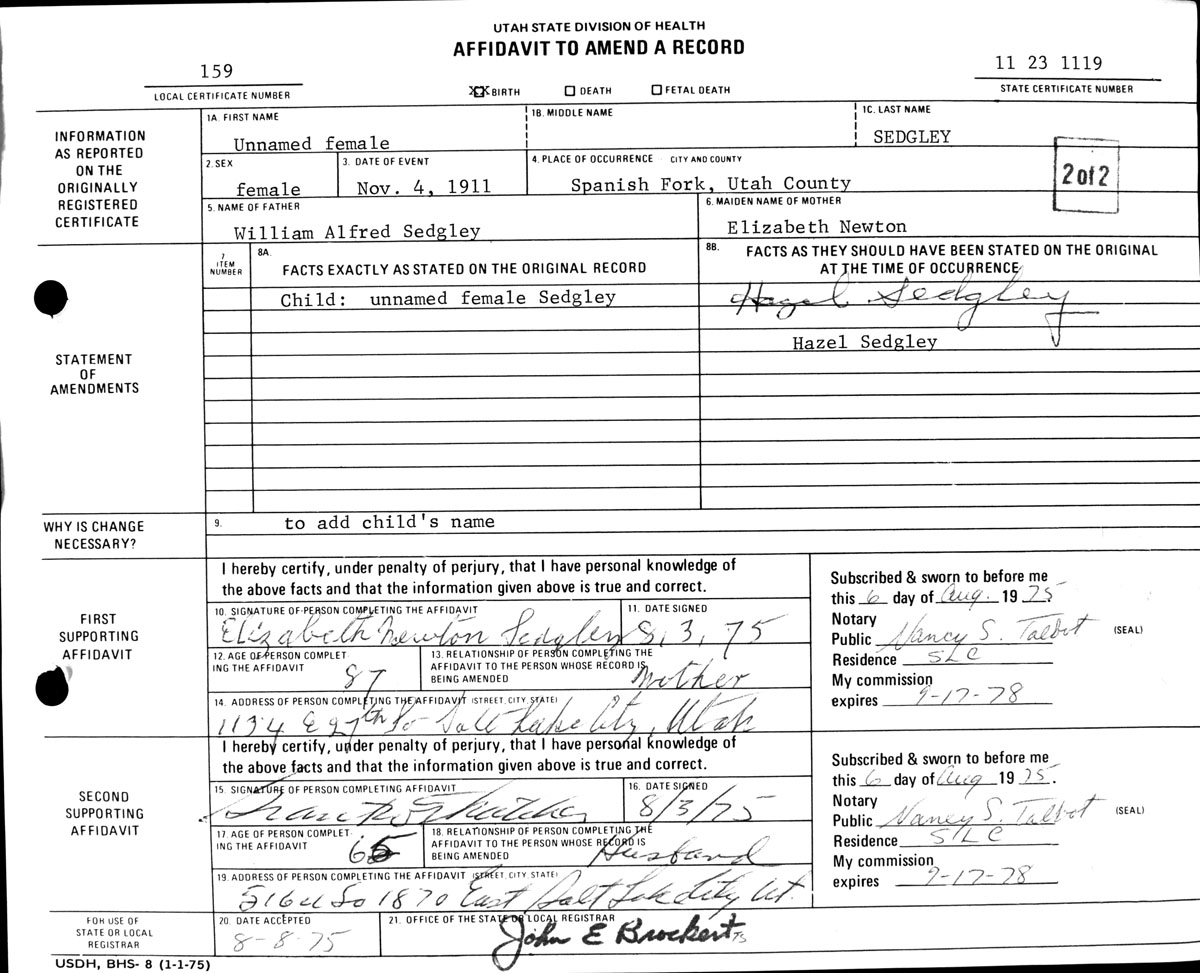 UTAH STATE DIVISION OF HEALTH
AFFIDAVIT TO AMEND A RECORD
159
LOCAL CERTIFICATE NUMBER
XX BIRTH DEATH FETAL DEATH
11 23 1119
STATE CERTIFICATE NUMBER
INFORMATION
AS REPORTED
ON THE
ORIGINALLY
REGISTERED
CERTIFICATE
1A. FIRST NAME
Unnamed female
1B. MIDDLE NAME
1C. LAST NAME
SEDGLEY
2. SEX
female
3. DATE OF EVENT
Nov. 4, 1911
4. PLACE OF OCCURRENCE - CITY AND COUNTY
Spanish Fork, Utah County
2 of 2
5. NAME OF FATHER
William Alfred Sedgley
6. MAIDEN NAME OF MOTHER
Elizabeth Newton
STATEMENT
OF
AMENDMENTS
7
ITEM
NUMBER
8A.
FACTS EXACTLY AS STATED ON THE ORIGINAL RECORD
8B.
FACTS AS THEY SHOULD HAVE BEEN STATED ON THE ORIGINAL
AT THE TIME OF OCCURRENCE
Child: unnamed female Sedgley
Hazel Sedgley
Hazel Sedgley
WHY IS CHANGE
NECESSARY?
9.
to add child's name
FIRST
SUPPORTING
AFFIDAVIT
I hereby certify, under penalty of perjury, that I have personal knowledge of
the above facts and that the information given above is true and correct.
10. SIGNATURE OF PERSON COMPLETING THE AFFIDAVIT
Elizabeth Newton Sedgley
11. DATE SIGNED
8, 3, 75
12. AGE OF PERSON COMPLET
ING THE AFFIDAVIT
87
13. RELATIONSHIP OF PERSON COMPLETING THE
AFFIDAVIT TO THE PERSON WHOSE RECORD IS
BEING AMENDED
Mother
14. ADDRESS OF PERSON COMPLETING THE AFFIDAVIT (STREET, CITY, STATE)
1134 E 27th So Salt Lake City, Utah
Subscribed & sworn to before me
this 6 day of Aug. 1975
Notary
Public Nancy S. Talbot (SEAL)
Residence SLC
My commission
expires 9-17-78
SECOND
SUPPORTING
AFFIDAVIT
I hereby certify, under penalty of perjury, that I have personal knowledge of
the above facts and that the information given above is true and correct.
15. SIGNATURE OF PERSON COMPLETING AFFIDAVIT
16. DATE SIGNED
8/3/75
17. AGE OF PERSON COMPLET
ING THE AFFIDAVIT
65
18. RELATIONSHIP OF PERSON COMPLETING THE
AFFIDAVIT TO THE PERSON WHOSE RECORD IS
BEING AMENDED
Husband
19. ADDRESS OF PERSON COMPLETING THE AFFIDAVIT (STREET, CITY, STATE)
So 1870 East Salt Lake City Ut.
Subscribed & sworn to before me
this 6 day of Aug 1975.
Notary
Public Nancy S. Talbot (SEAL)
Residence SLC
My commission
expires 9-17-78
FOR USE OF
STATE OR LOCAL
REGISTRAR
20. DATE ACCEPTED
8-8-75
21. OFFICE OF THE STATE OR LOCAL REGISTRAR
John E Brockert TS
USDH, BHS- 8 (1-1-75)